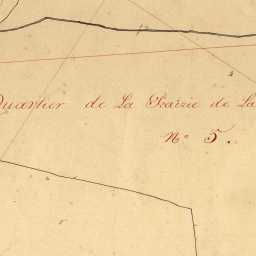 Quartier de La Prairie de La
N° 5.